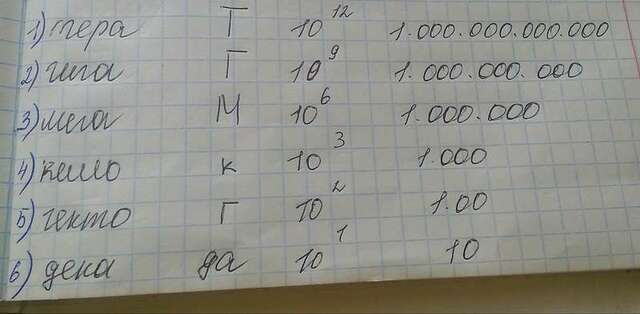 1) тера Т 10¹² 1.000.000.000.000
2) гига Г 10⁹ 1.000.000.000
3) мега М 10⁶ 1.000.000
4) кило к 10³ 1.000
5) гекто г 10² 1.00
6) дека да 10¹ 10